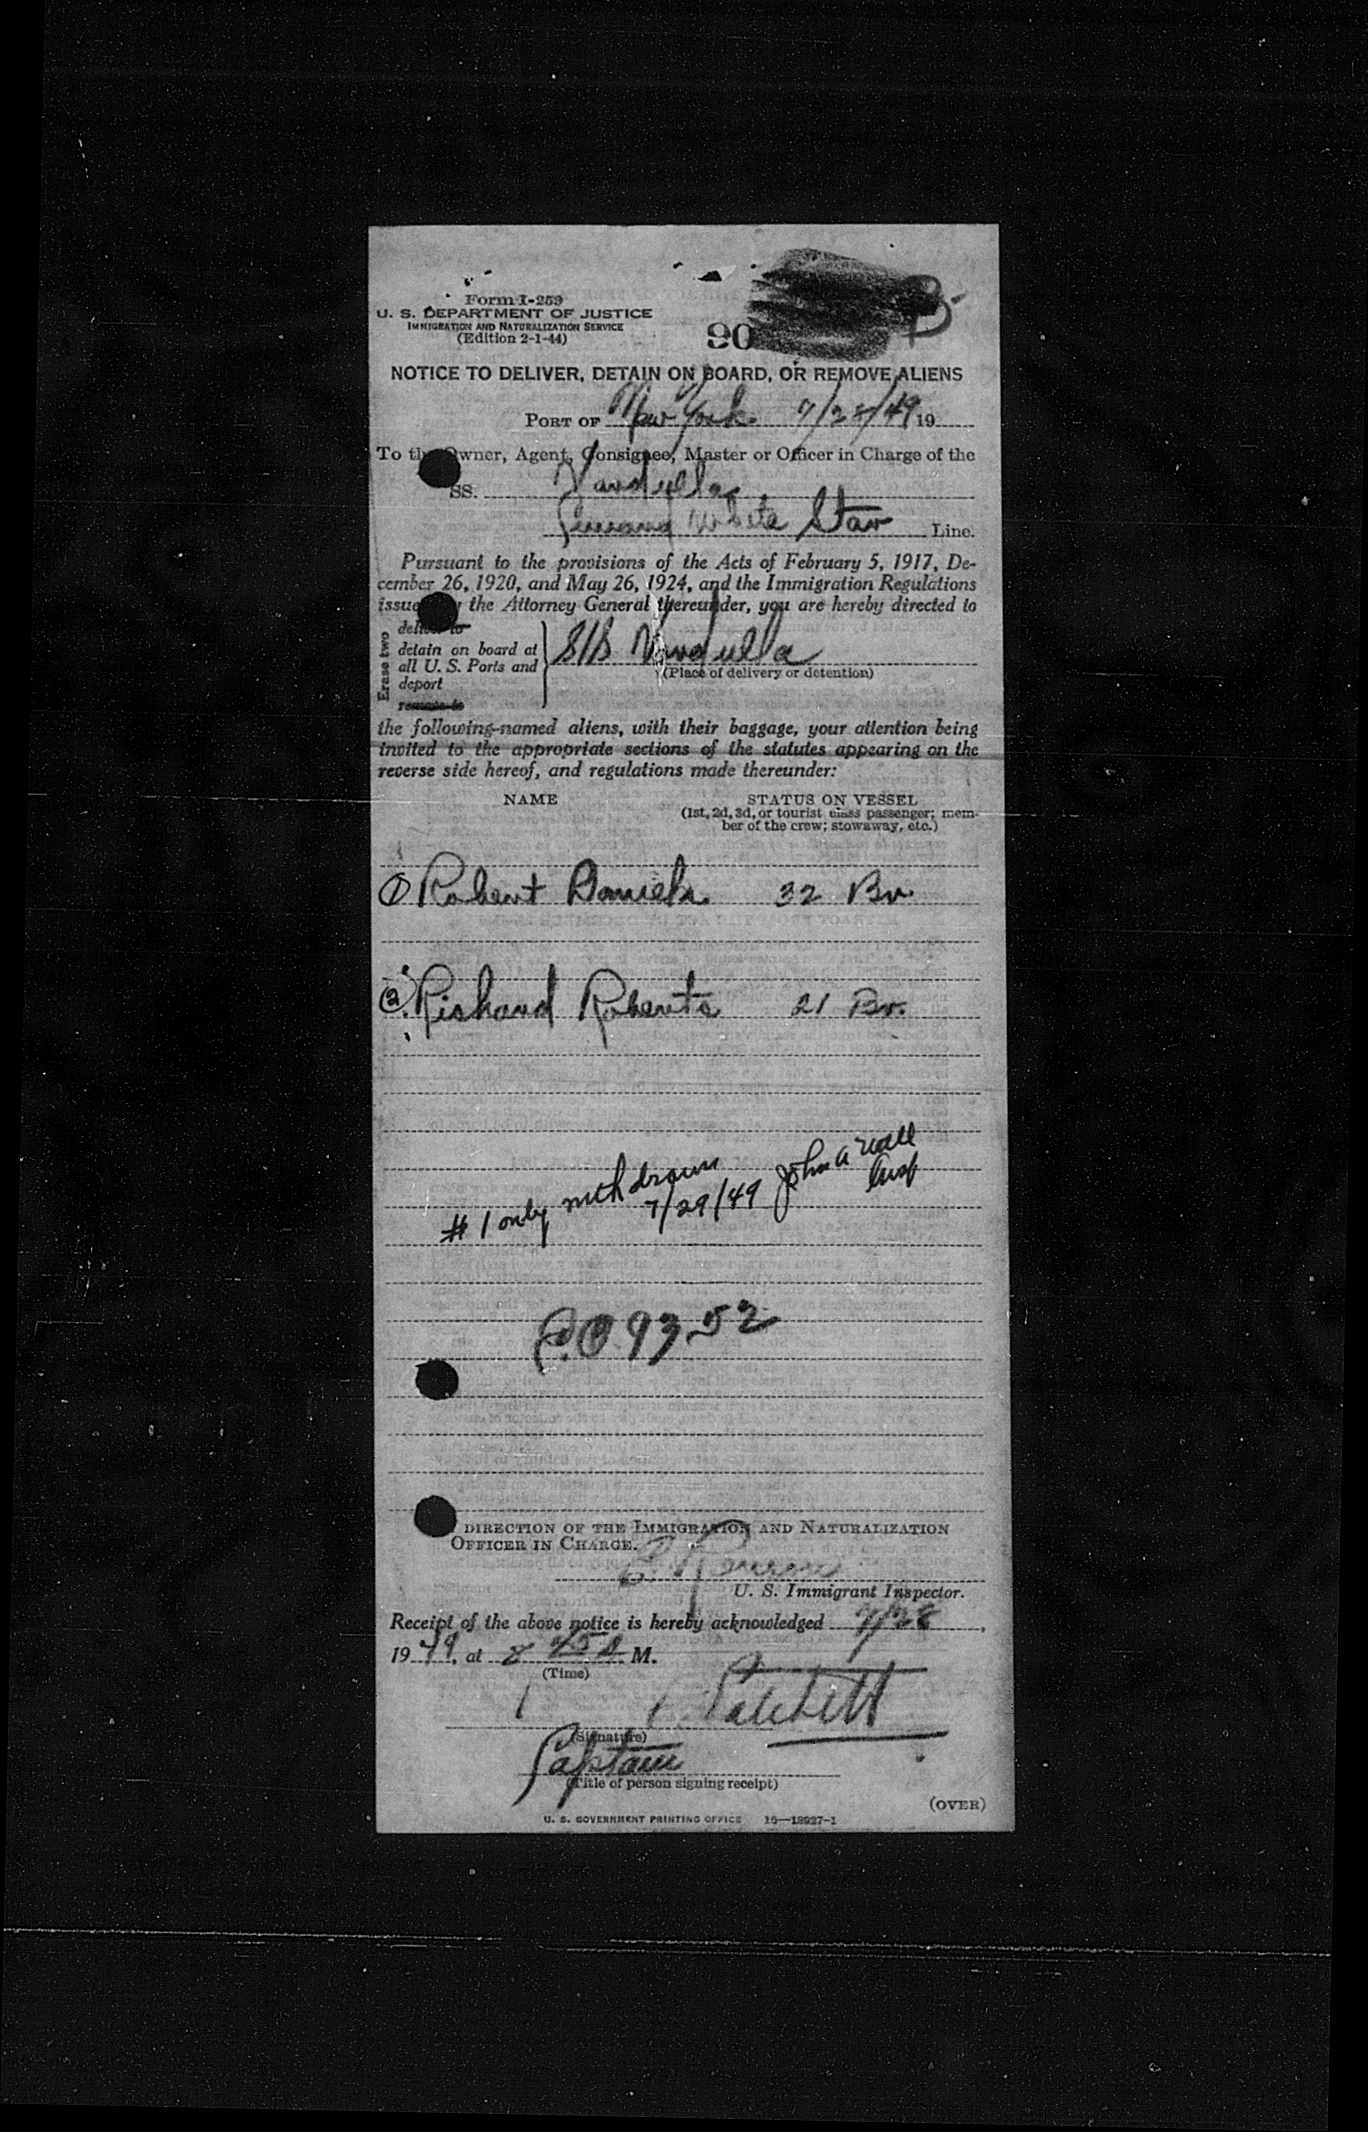 Form I-259
U. S. DEPARTMENT OF JUSTICE
IMMIGRATION AND NATURALIZATION SERVICE
(Edition 2-1-44)
90
NOTICE TO DELIVER, DETAIN ON BOARD, OR REMOVE ALIENS
PORT OF New York 7/28/49 19
To the Owner, Agent, Consignee, Master or Officer in Charge of the
SS. Vardulla
Cunard White Star Line.
Pursuant to the provisions of the Acts of February 5, 1917, De-
cember 26, 1920, and May 26, 1924, and the Immigration Regulations
issued by the Attorney General thereunder, you are hereby directed to
Erase two
deliver to
detain on board at
all U. S. Ports and
deport
remove to
S/S Vardulla
(Place of delivery or detention)
the following-named aliens, with their baggage, your attention being
invited to the appropriate sections of the statutes appearing on the
reverse side hereof, and regulations made thereunder:
NAME STATUS ON VESSEL
(1st, 2d, 3d, or tourist class passenger; mem-
ber of the crew; stowaway, etc.)
① Robert Daniels 32 Br.
② Richard Roberts 21 Br.
# 1 only withdrawn John A Wall
7/29/49 Insp
09352
DIRECTION OF THE IMMIGRATION AND NATURALIZATION
OFFICER IN CHARGE.
U. S. Immigrant Inspector.
Receipt of the above notice is hereby acknowledged 7/28,
1949, at 8 45 A. M.
(Time)
(Signature)
Captain
(Title of person signing receipt)
(OVER)
U. S. GOVERNMENT PRINTING OFFICE 16—18927-1